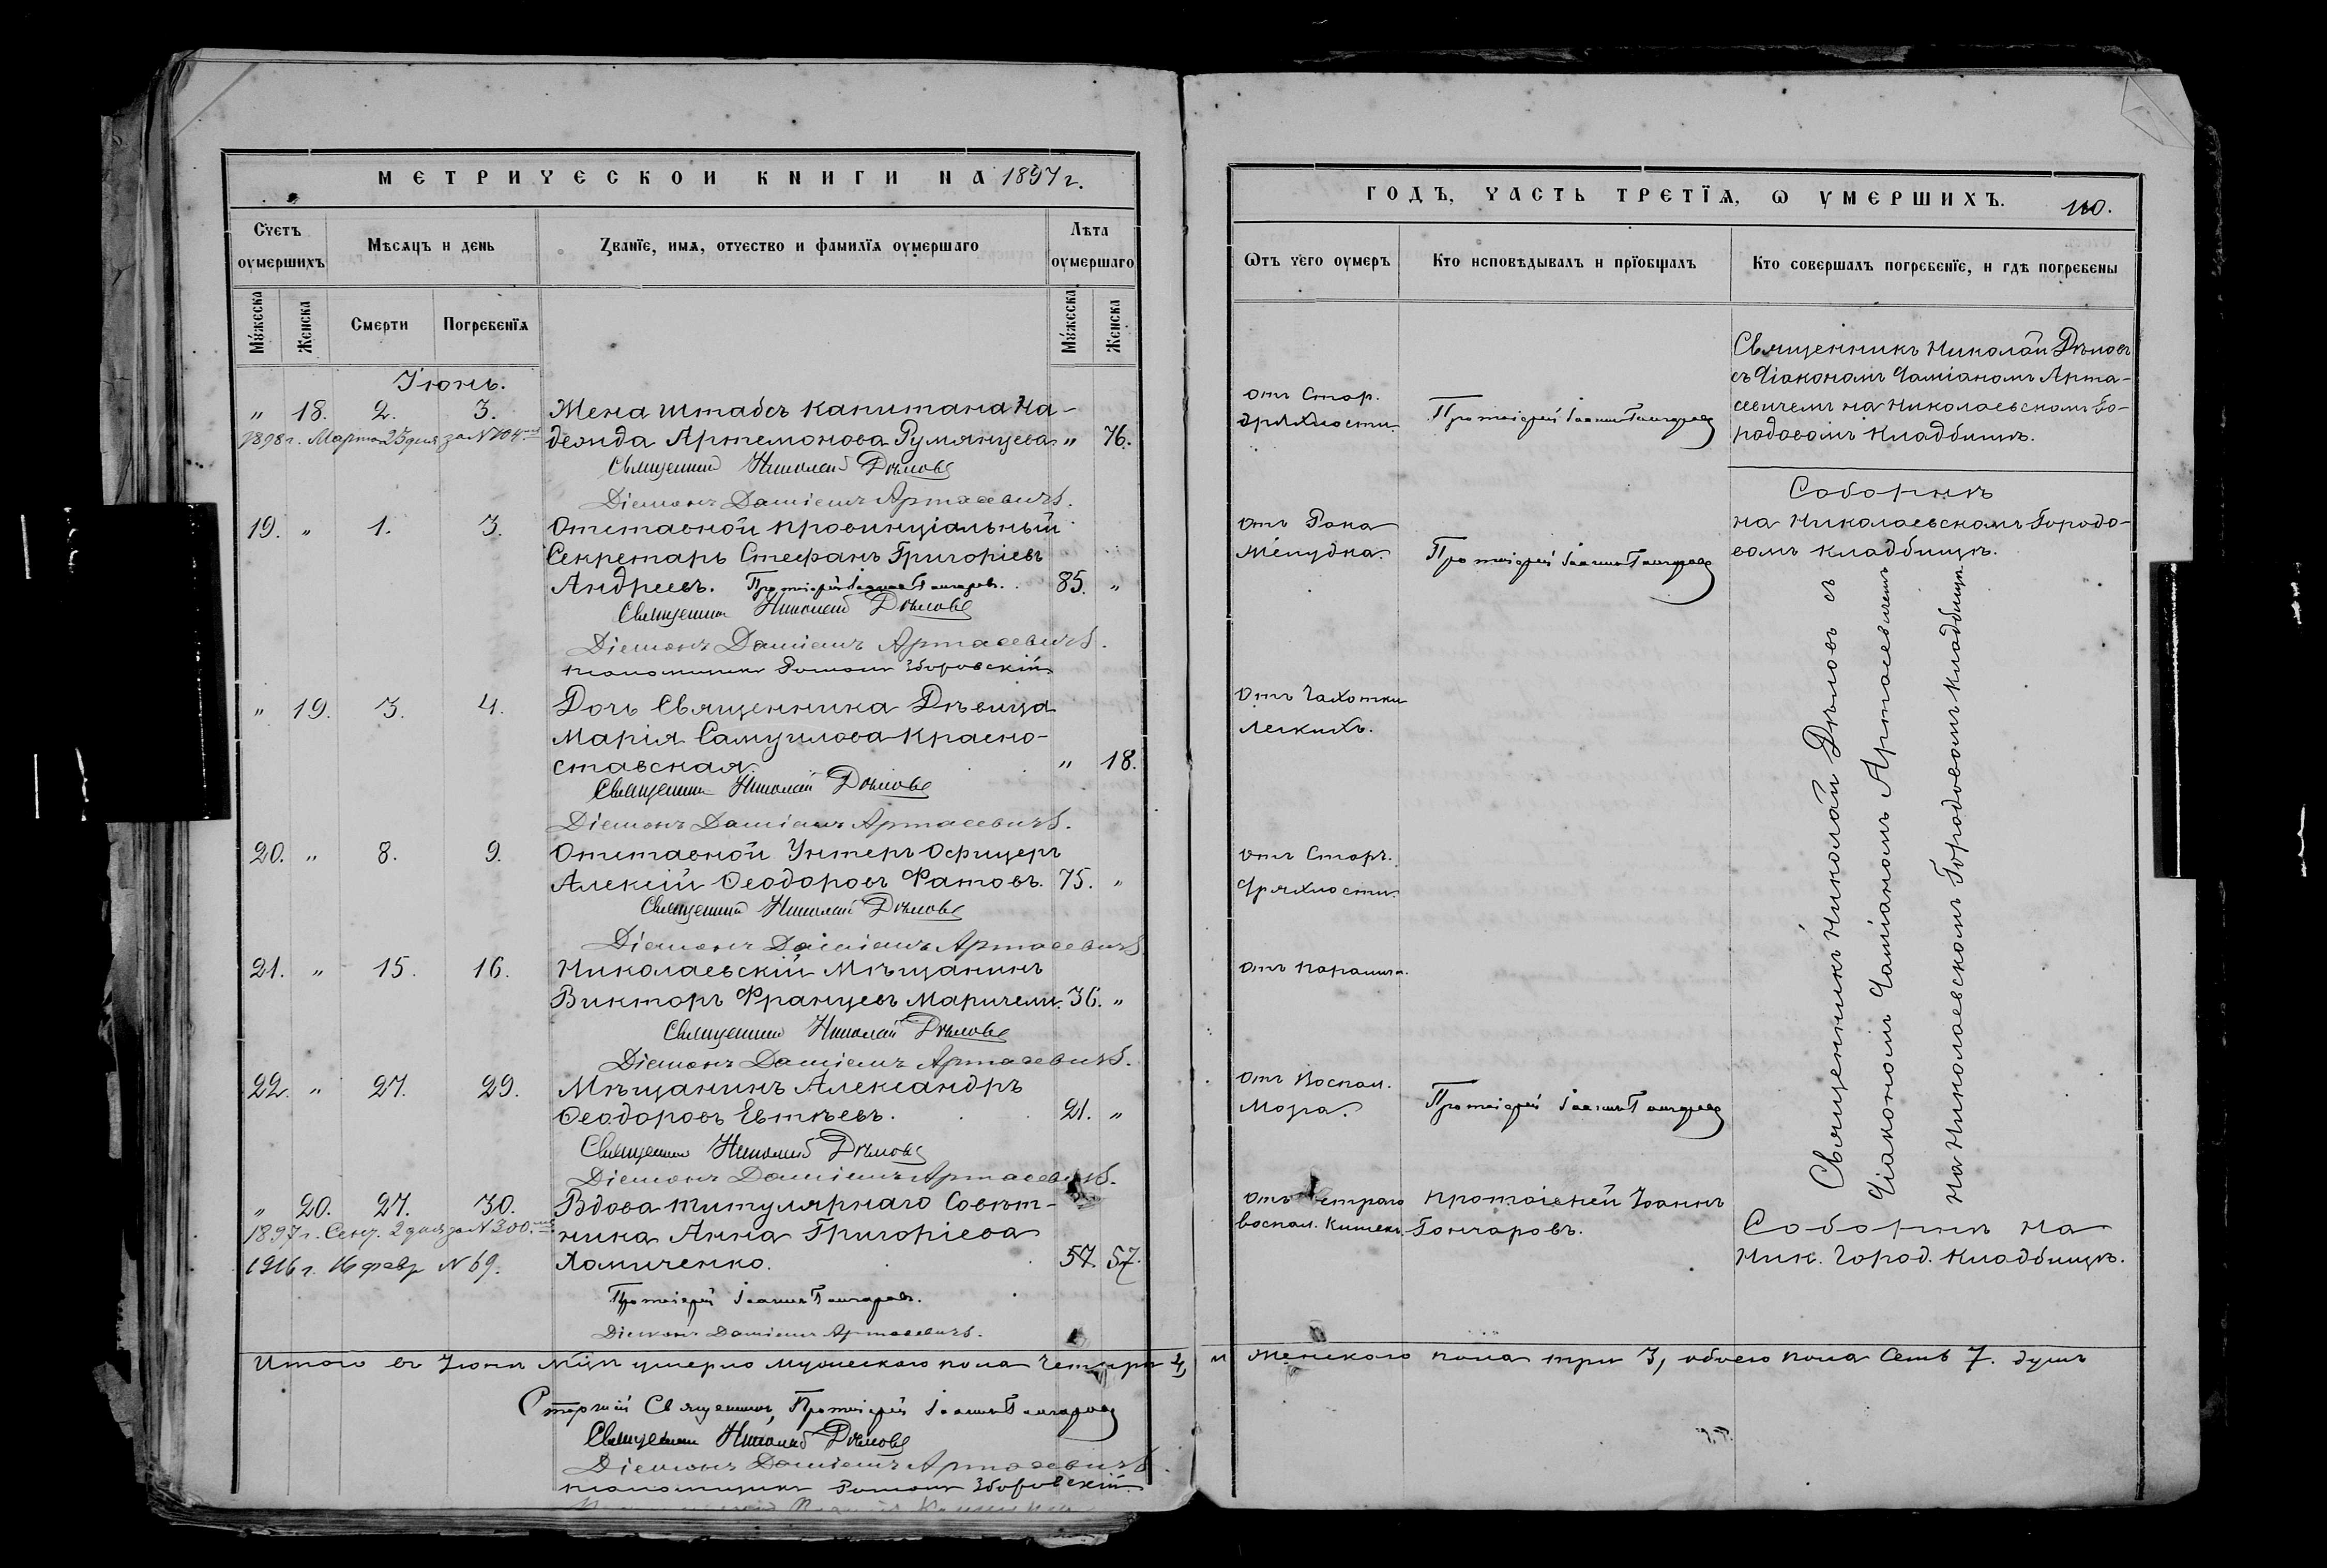 МЕТРИЧЕСКОЙ КНИГИ НА 1897 г.
Счетъ оумершихъ
Мѣсяцъ и день
Званїе, имя, отчество и фамилїя оумершаго
Лѣта оумершаго
Мужеска
Женска
Смерти
Погребенїя
Мужеска
Женска
Іюнь.
" 18. 2. 3. Жена штабсъ капитана На-
1898 г. Марта 23 дня за № 104 дежда Артемонова Румянцева " 76.
Священникъ Николай Дѣловъ
Діаконъ Даміанъ Артасевичъ.
19. " 1. 3. Отставной провинціальный
Секретарь Стефанъ Григоріевъ
Андреевъ. Протоіерей Іоаннъ Гончаровъ. 85. "
Священникъ Николай Дѣловъ
Діаконъ Даміанъ Артасевичъ.
псаломщикъ Романъ Зборовскій
" 19. 3. 4. Дочь Священника Дѣвица
Марія Самуилова Красно-
ставская " 18.
Священникъ Николай Дѣловъ
Діаконъ Даміанъ Артасевичъ.
20. " 8. 9. Отставной Унтеръ Офицеръ
Алексій Ѳеодоровъ Фатовъ. 75. "
Священникъ Николай Дѣловъ
Діаконъ Даміанъ Артасевичъ
21. " 15. 16. Николаевскій Мѣщанинъ
Викторъ Францевъ Маричели. 36. "
Священникъ Николай Дѣловъ
Діаконъ Даміанъ Артасевичъ.
22. " 27. 29. Мѣщанинъ Александръ
Ѳеодоровъ Евтѣевъ. 21. "
Священникъ Николай Дѣловъ
Діаконъ Даміанъ Артасевичъ.
" 20. 27. 30. Вдова титулярнаго Совѣт-
1897 г. Сент. 2 дня за № 300 ника Анна Григоріева
1916 г. 16 февр № 69. Хомиченко. 57. 57.
Протоіерей Іоаннъ Гончаровъ.
Діаконъ Даміанъ Артасевичъ.
Итого въ Іюнѣ мцѣ умерло мужескаго пола четыре 4,
Старшій Священникъ, Протоіерей Іоаннъ Гончаровъ
Священникъ Николай Дѣловъ
Діаконъ Даміанъ Артасевичъ
псаломщикъ Романъ Зборовскій
ГОДЪ, ЧАСТЬ ТРЕТЇЯ, Ѡ УМЕРШИХЪ. 110.
Ѿтъ чего оумеръ
Кто исповѣдывалъ и прїобщалъ
Кто совершалъ погребенїе, и гдѣ погребены
отъ Стар.
дряхлости.
Протоіерей Іоаннъ Гончаровъ
Священникъ Николай Дѣловъ
съ Діакономъ Даміаномъ Арта-
севичемъ на Николаевскомъ Го-
родовомъ Кладбищѣ.
отъ Рака
желудка.
Протоіерей Іоаннъ Гончаровъ
Соборнѣ
на Николаевскомъ Городо-
вомъ кладбищѣ.
Отъ Чахотки
легкихъ.
отъ Старч.
Дряхлости.
отъ Паралича.
отъ Воспал.
Мозга.
Протоіерей Іоаннъ Гончаровъ
Священникъ Николай Дѣловъ съ
Діакономъ Даміаномъ Артасевичемъ
на Николаевскомъ Городовомъ кладбищѣ.
отъ Остраго
воспал. Кишекъ.
Протоіерей Іоаннъ
Гончаровъ.
Соборнѣ на
Ник. Город. Кладбищѣ.
и женскаго пола три 3, обоего пола Семь 7. душъ